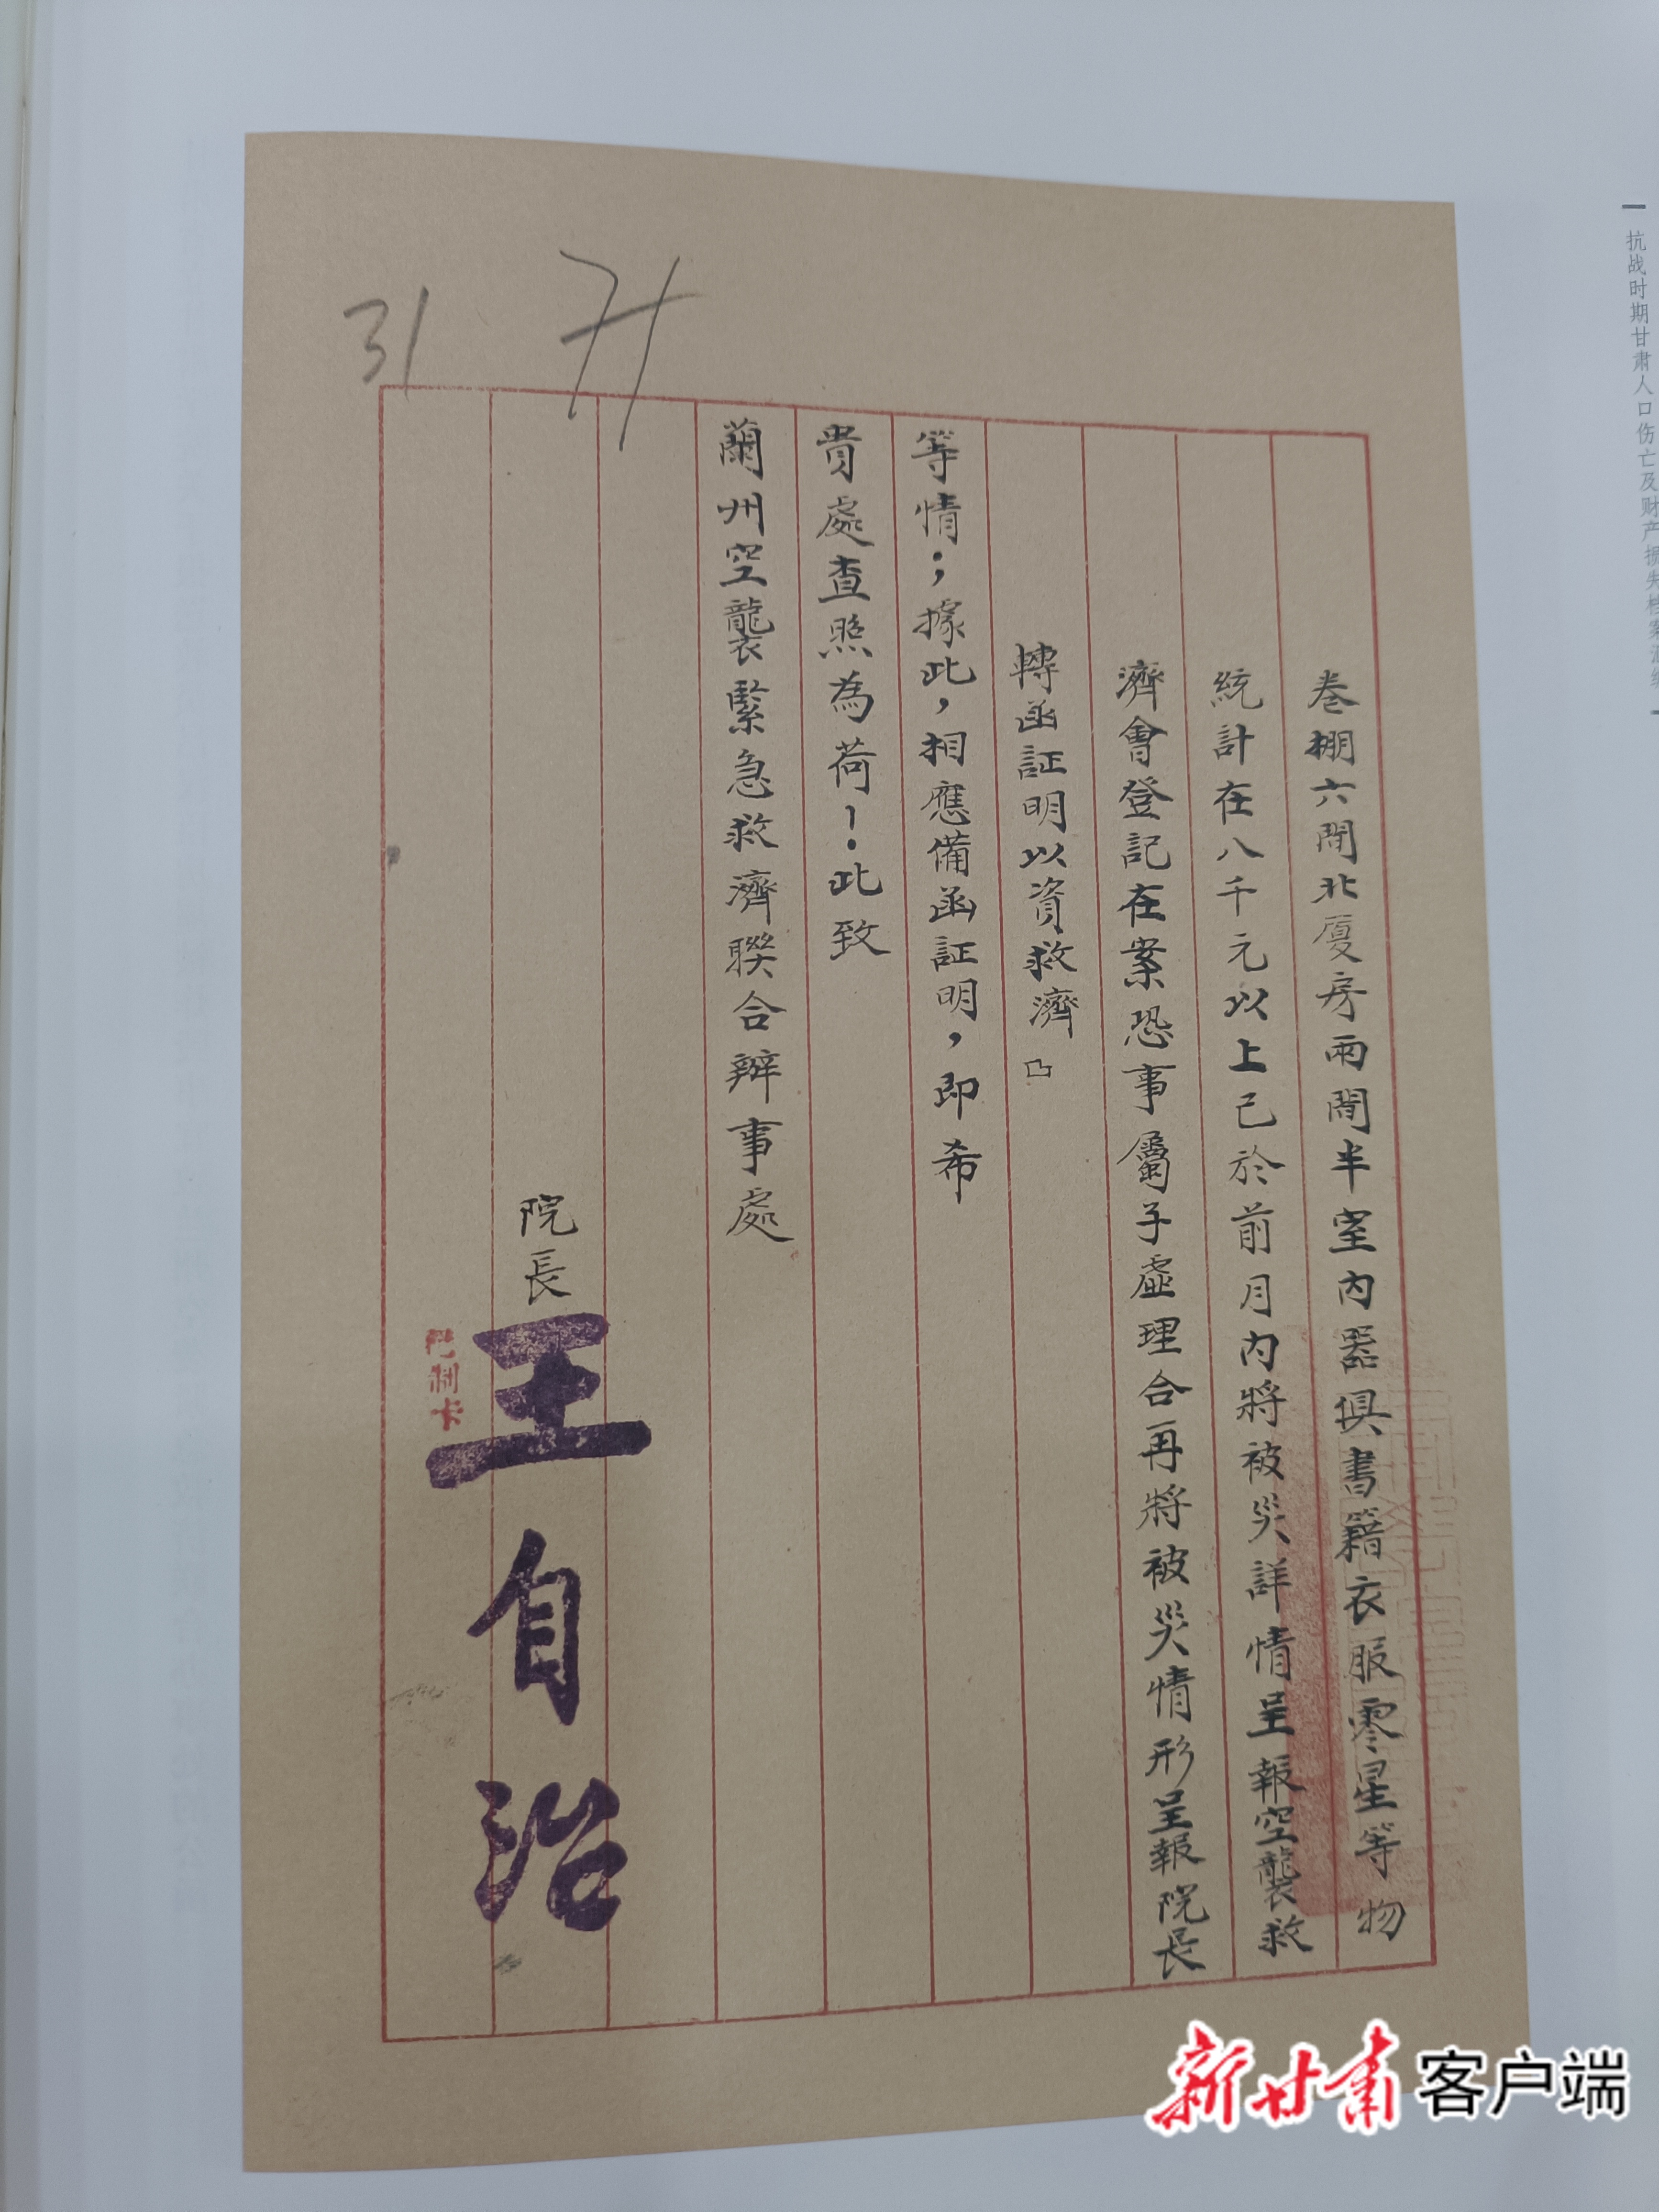 抗战时期甘肃人口伤亡及财产损失档案
卷棚六間北厦房兩間半室內器俱書籍衣服零星等物
統計在八千元以上已於前月內將被災詳情呈報空襲救
濟會登記在案恐事屬子虛理合再將被災情形呈報院長
轉函証明以資救濟」
等情；據此，相應備函証明，即希
貴處查照為荷！此致
蘭州空襲緊急救濟聯合辦事處
院長王自治
已制卡
31
新甘肃客户端